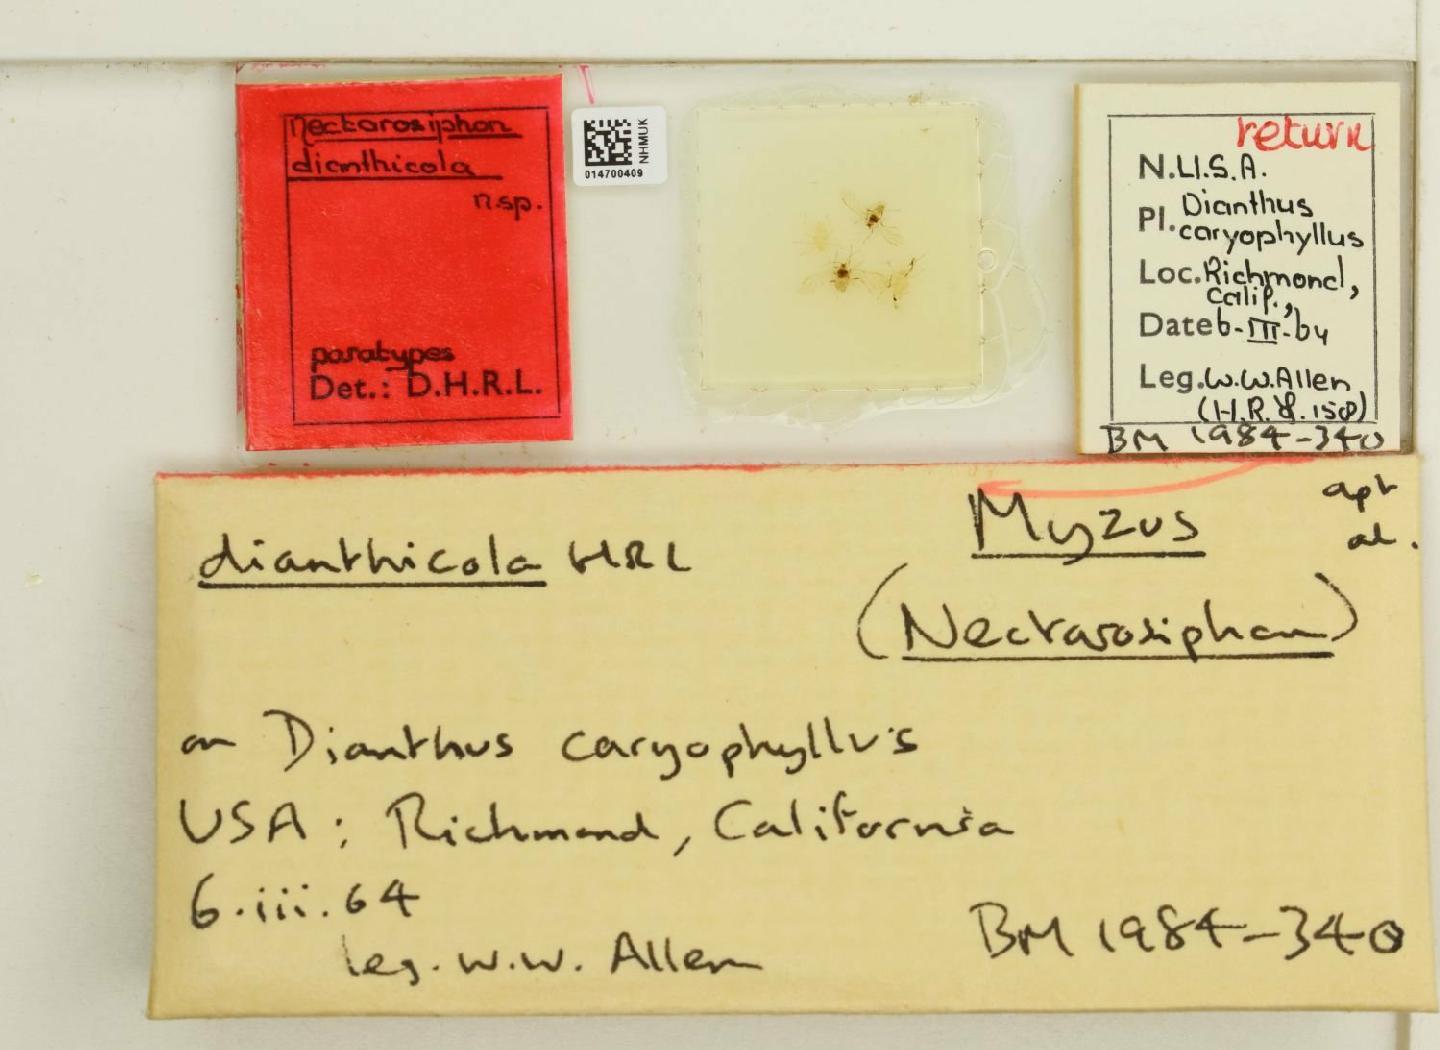 Nectarosiphon
dianthicola
n.sp.
paratypes
Det.: D.H.R.L.
NHMUK
014700409
return
N.U.S.A.
Pl. Dianthus
caryophyllus
Loc. Richmond,
Calif.,
Date 6-III-64
Leg. W.W. Allen
(H.R.L. 158)
BM 1984-340
dianthicola HRL
Myzus
(Nectarosiphon)
apt
al.
on Dianthus caryophyllus
USA: Richmond, California
6.iii.64
leg. W.W. Allen
BM 1984-340